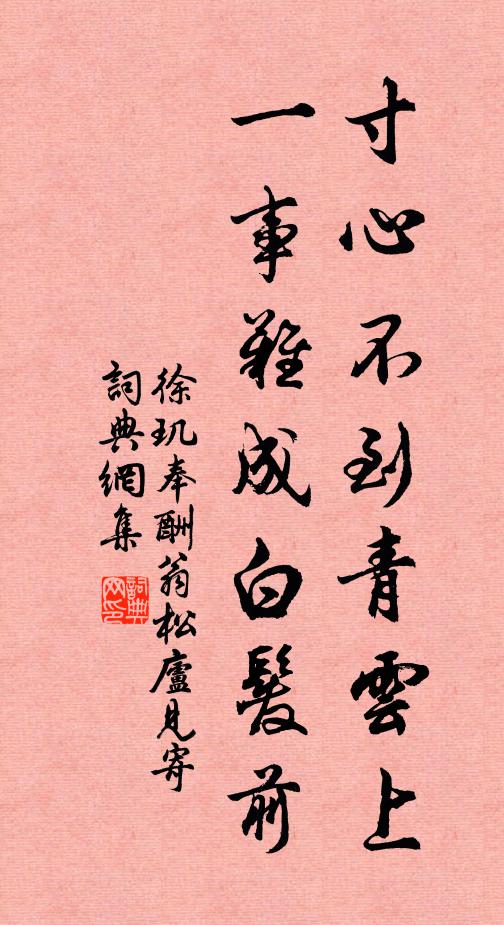 寸心不到青雲上
一事難成白髮前
徐璣奉酬翁松廬見寄
詞典網集
詞典网印